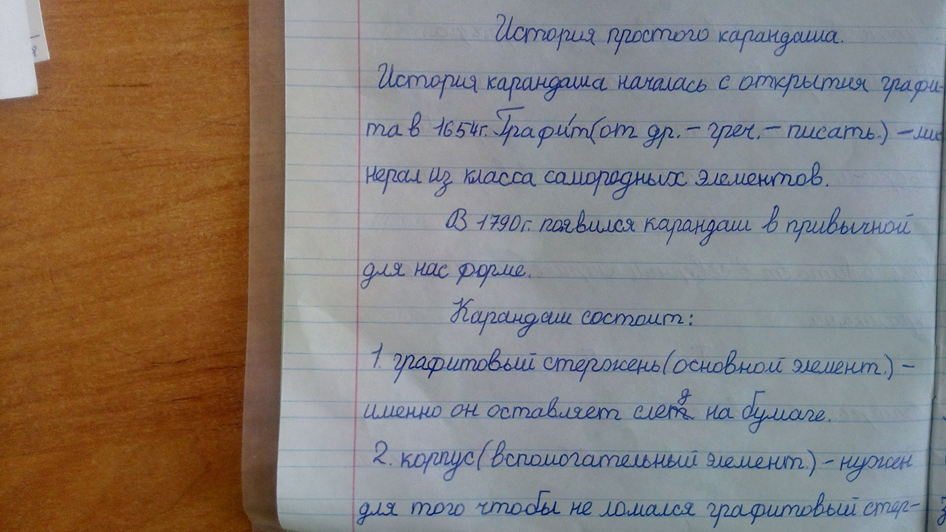 История простого карандаша.
История карандаша началась с открытия графи-
та в 1654г. Графит(от др. – греч. – писать.) – ми
нерал из класса самородных элементов.
В 1790г. появился карандаш в привычной
для нас форме.
Карандаш состоит:
1. графитовый стержень(основной элемент.) –
именно он оставляет след на бумаге.
2. корпус(вспомогательный элемент.) – нужен
для того чтобы не ломался графитовый стер-